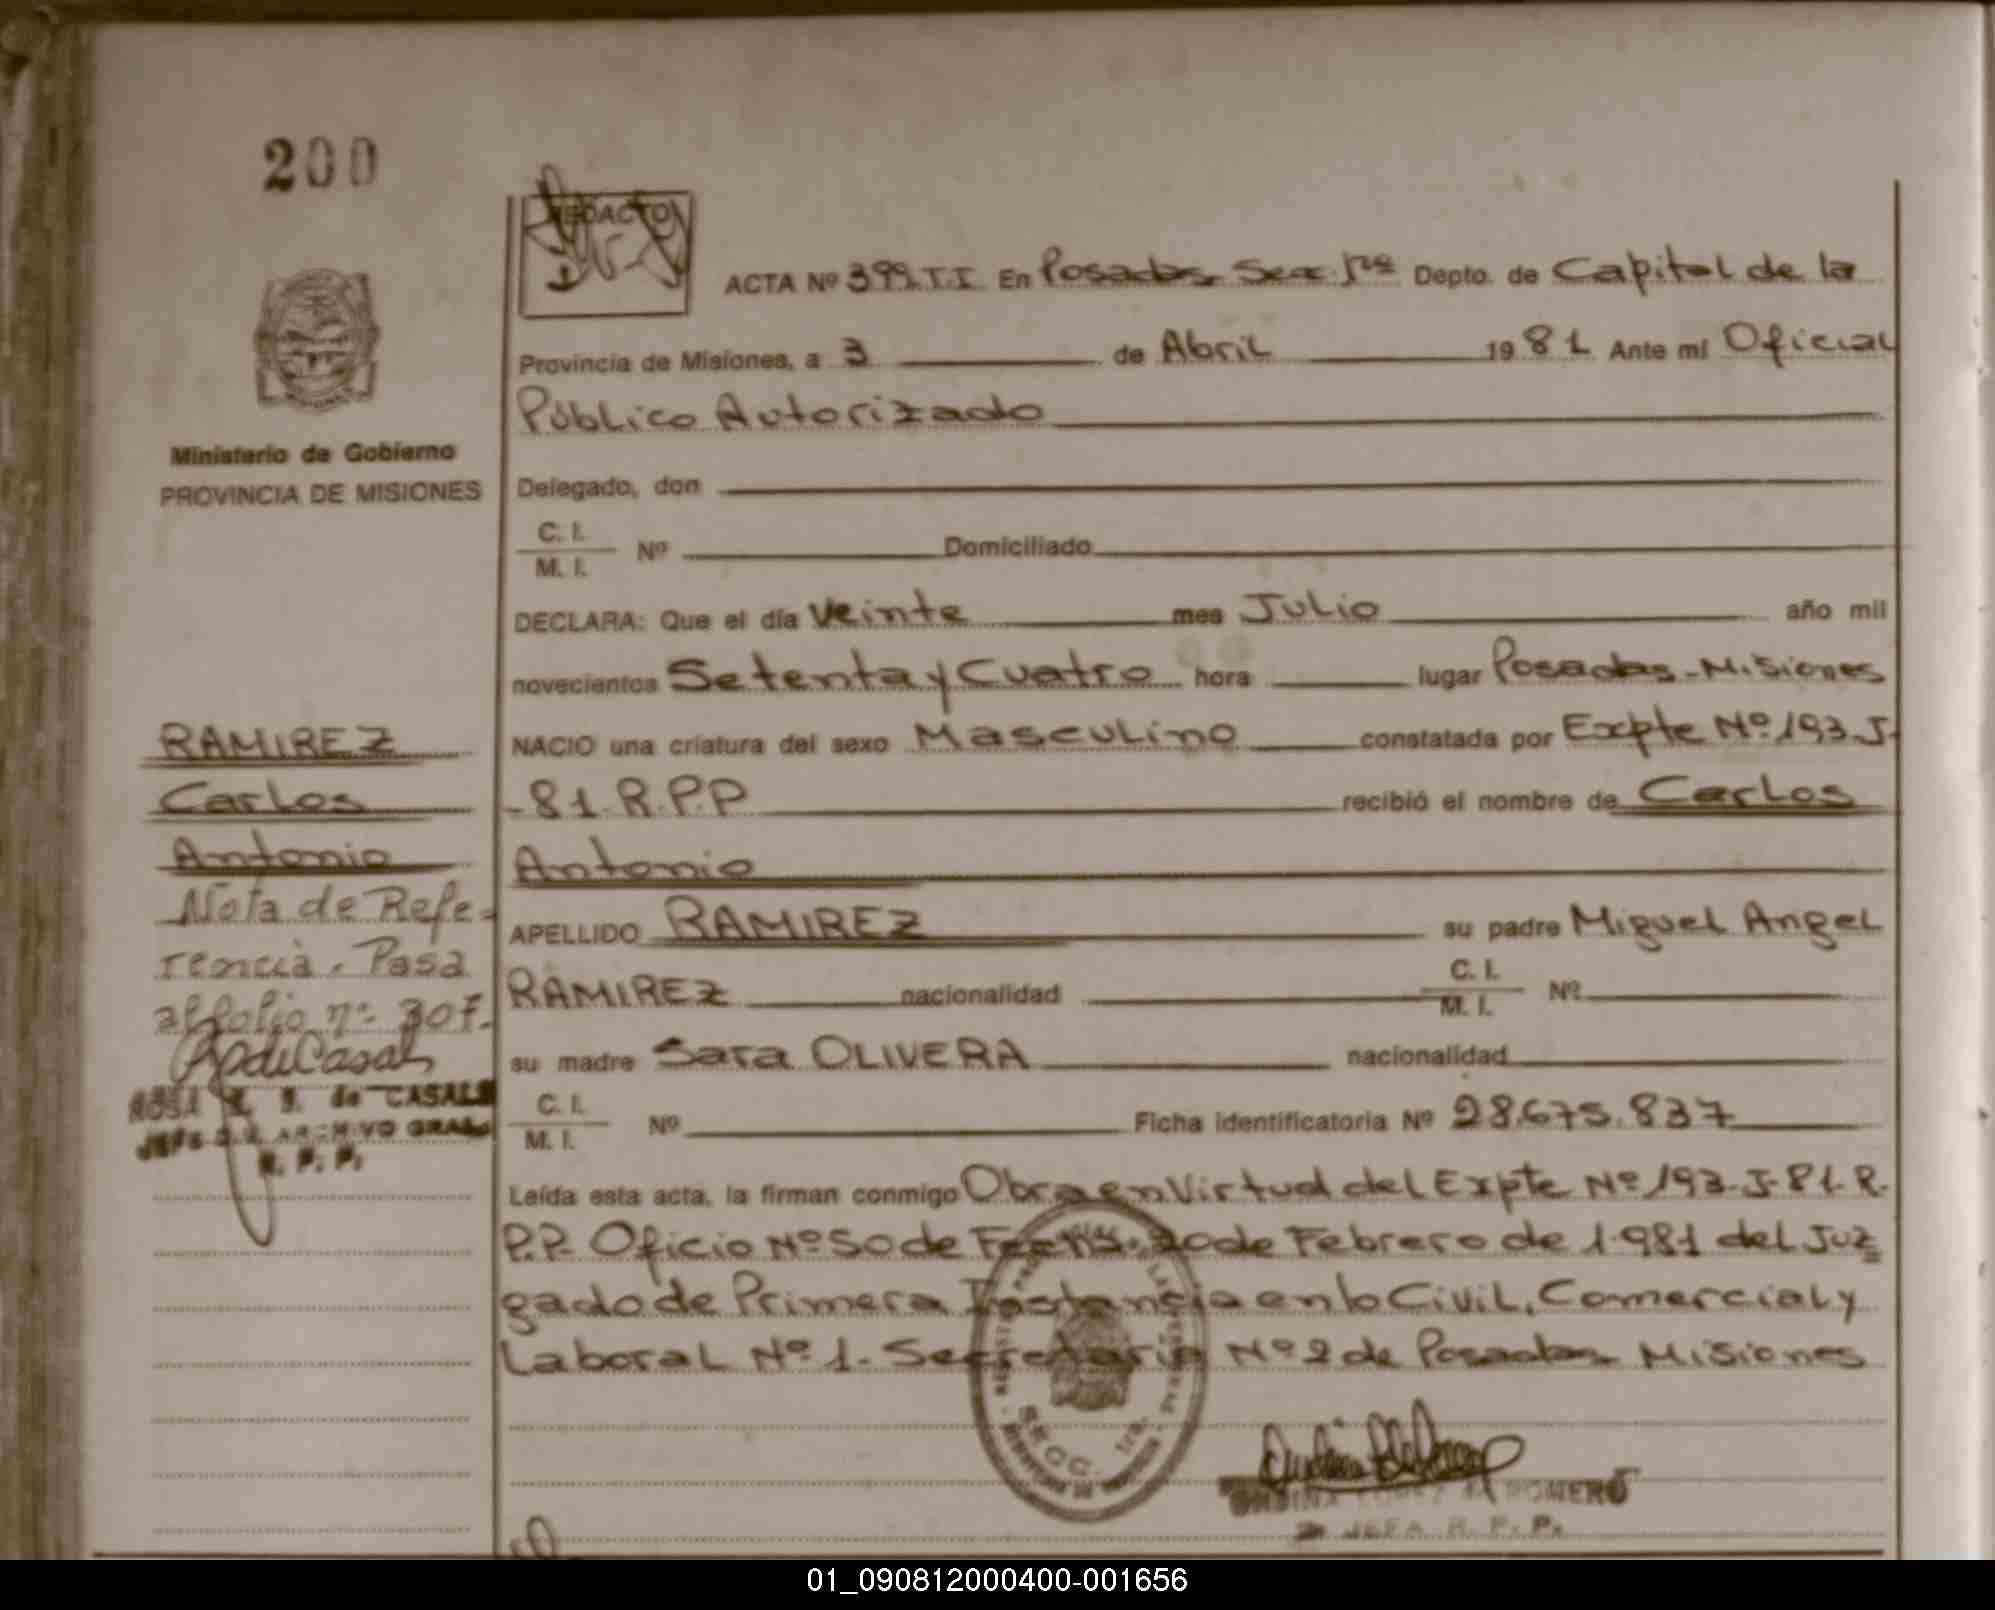 200
REDACTO
ACTA Nº 399.T.I En Posadas Secc. 1ra Depto. de Capital de la
Provincia de Misiones, a 3 de Abril 1981 Ante mi Oficial
Público Autorizado
Ministerio de Gobierno
PROVINCIA DE MISIONES
Delegado, don
C. I.
M. I. Nº Domiciliado
DECLARA: Que el día Veinte mes Julio año mil
novecientos Setenta y Cuatro hora lugar Posadas-Misiones
NACIO una criatura del sexo Masculino constatada por Expte Nº 193-J-
-81-R.P.P recibió el nombre de Carlos
Antonio
APELLIDO RAMIREZ su padre Miguel Angel
RAMIREZ nacionalidad C. I. M. I. Nº
su madre Sara OLIVERA nacionalidad
C. I.
M. I. Nº Ficha identificatoria Nº 28.675.837
Leída esta acta, la firman conmigo Obra en Virtud del Expte Nº 193-J-81-R.
P.P. Oficio Nº 50 de Fecha 20 de Febrero de 1981 del Juz
gado de Primera Instancia en lo Civil, Comercial y
Laboral Nº 1. Secretaria Nº 2 de Posadas Misiones
RAMIREZ
Carlos
Antonio
Nota de Refe-
rencia. Pasa
al folio nº 307.
de CASALS
JEFE ARCHIVO GRAL
R. P. P.
SECC. 1ra.
ROMERO
JEFA R. P. P.
01_090812000400-001656